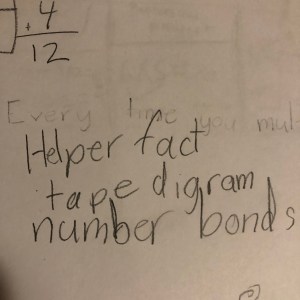 + 4
12
Every time you mul
Helper fact
tape digram
number bonds